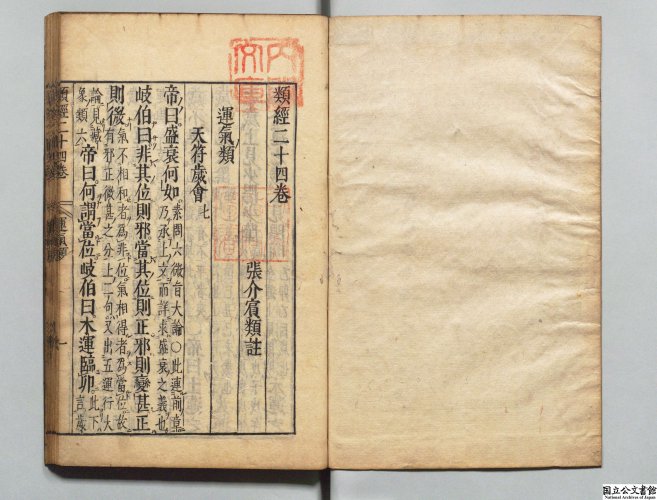 類經二十四卷
張介賓類註
運氣類
天符歲會
帝曰盛衰何如素問六微旨大論○此連前章
乃承上文而詳求盛衰之義也
岐伯曰非其位則邪當其位則正邪則變甚正
則微氣不相和者為非位氣相得者為當位故
有邪正微甚之分上二句又出五運行大
論見藏
象類六帝曰何謂當位岐伯曰木運臨卯此下
言歲
類經二十四卷
運氣類
一
国立公文書館
National Archives of Japan